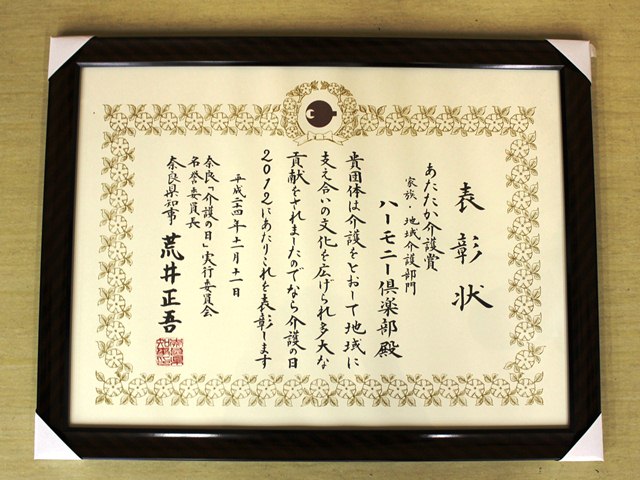 表彰状
あたたか介護賞
家族・地域介護部門
ハーモニー倶楽部殿
貴団体は介護をとおして地域に
支え合いの文化を広げられ多大な
貢献をされましたのでなら介護の日
2012にあたりこれを表彰します
平成二十四年十一月十一日
奈良「介護の日」実行委員会
名誉委員長
奈良県知事 荒井正吾